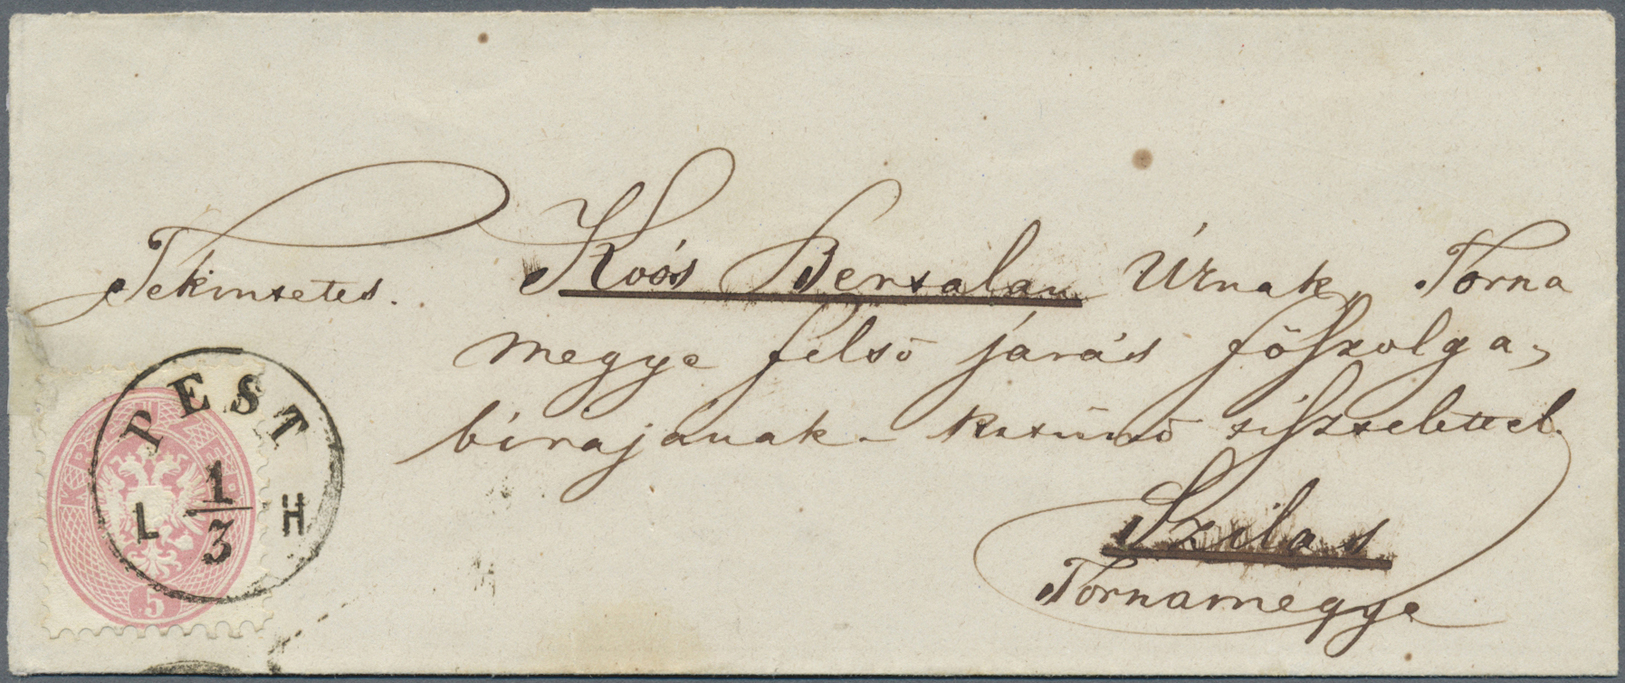 Tekintetes. Koós Bertalan Úrnak, Torna
megye felső járás főszolga,
birájának - kitünő tisztelettel.
Szilas
Tornamegye
PEST
L 1/3 H
KR. KREUZER
5